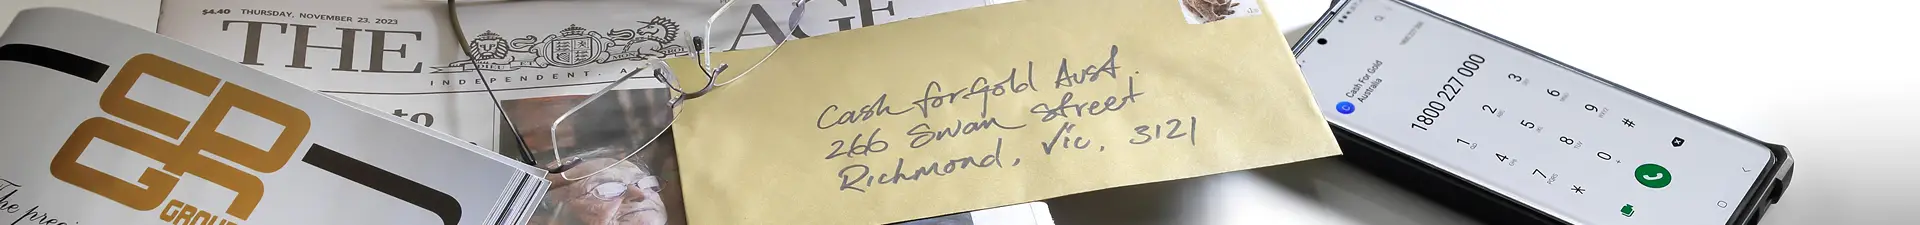 $4.40 THURSDAY, NOVEMBER 23. 2023
THE AGE
INDEPENDENT. A
to
GROUP
The
Cash for Gold Aust.
266 Swan Street
Richmond, Vic, 3121
Cash For Gold
Australia
1800 2227 000
1 2 3
4 5 6
7 8 9
* 0 #